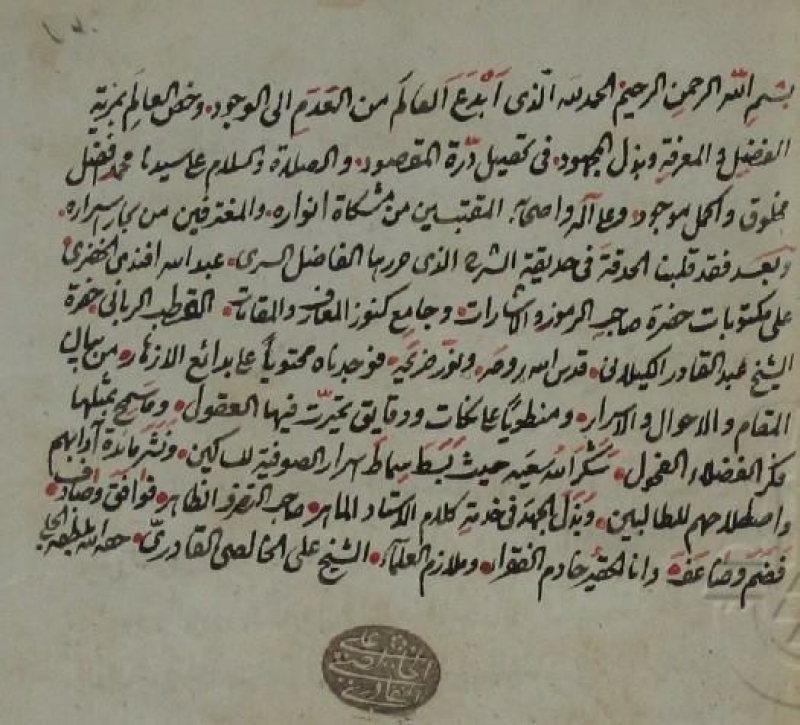 بسم الله الرحمن الرحيم الحمد لله الّذى اَبْدَعَ العالَم من العَدَمِ الى الوجود. وخص العالِم بمزية
الفضل والمعرفة وبذل المجهود. فى تحصيل درّة المقصود. والصلاة والسلام على سيدنا محمد افضل
مخلوق واكمل موجود. وعلى آله واصحابه المقتبسين من مشكاة انواره. والمغترفين من بحار اسراره.
وبعد فقد قلبنا الحدقة فى حديقة الشرح الذى حررها الفاضل السرى. عبد الله افندى الخضرى
على مكتوبات حضرة صاحب الرموز والاشارات. وجامع كنوز المعارف والمقامات. القطب الربانى حضرة
الشيخ عبد القادر الكيلانى. قدس الله روحه. ونوّر ضريحه. فوجدناه محتوياً على بدائع الازهار. من بيان
المقام والاحوال والاسرار. ومنطوياً على نكات ودقايق تحيّرت فيها العقول. وما سمح بمثلها
فكر الفضلاء الفحول. شكر الله سعيه حيث بَسَطَ سِماطَ اسرار الصوفية للساكين. ونشر مائدة آدابهم
واصطلاحهم للطالبين. وبَذَلَ الجهد فى خدمة كلام الاستاد الماهر. صاحب التصرف الظاهر. فوافق وصادف.
فضم وضاعف. وانا الحقير خادم الفقراء. وملازم العلماء. الشيخ على الخالصى القادرىّ. حفه الله بلطفه
على
الخالصى
القادرى